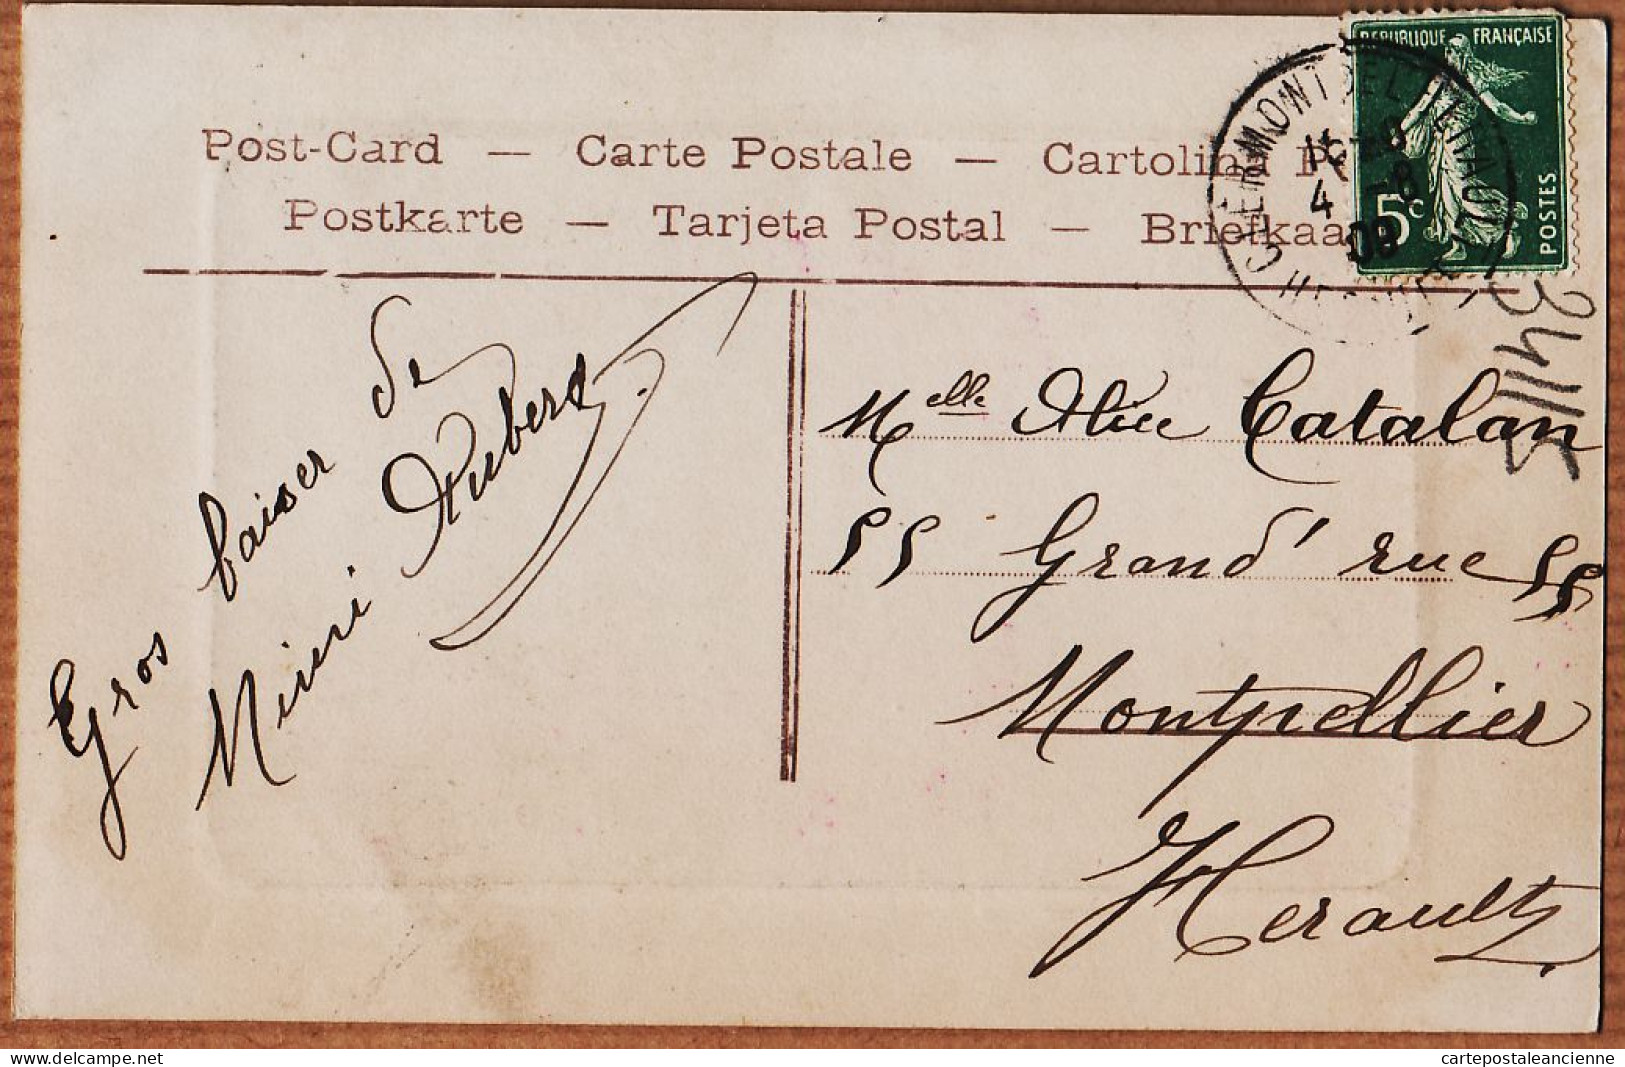 Post-Card — Carte Postale — Cartolina P
Postkarte — Tarjeta Postal — Briefkaa
REPUBLIQUE FRANÇAISE
5c
POSTES
CLERMONT DE L'HERAULT
4 -8
08
HERAULT
Gros baiser de
Mimi Auberd
Melle Alice Catalan
55 Grand' rue 55
Montpellier
Herault
cartepostaleancienne